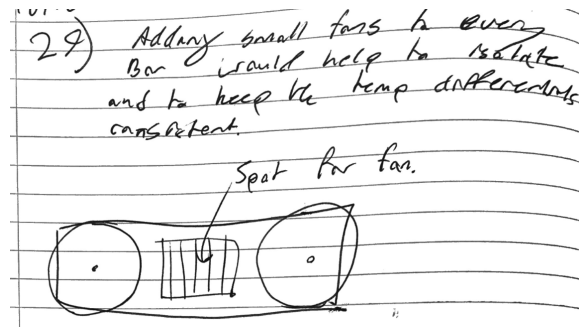 29) Adding small fans to every
Bar would help to isolate
and to keep the temp differentials
consistent.
Spot for fan.